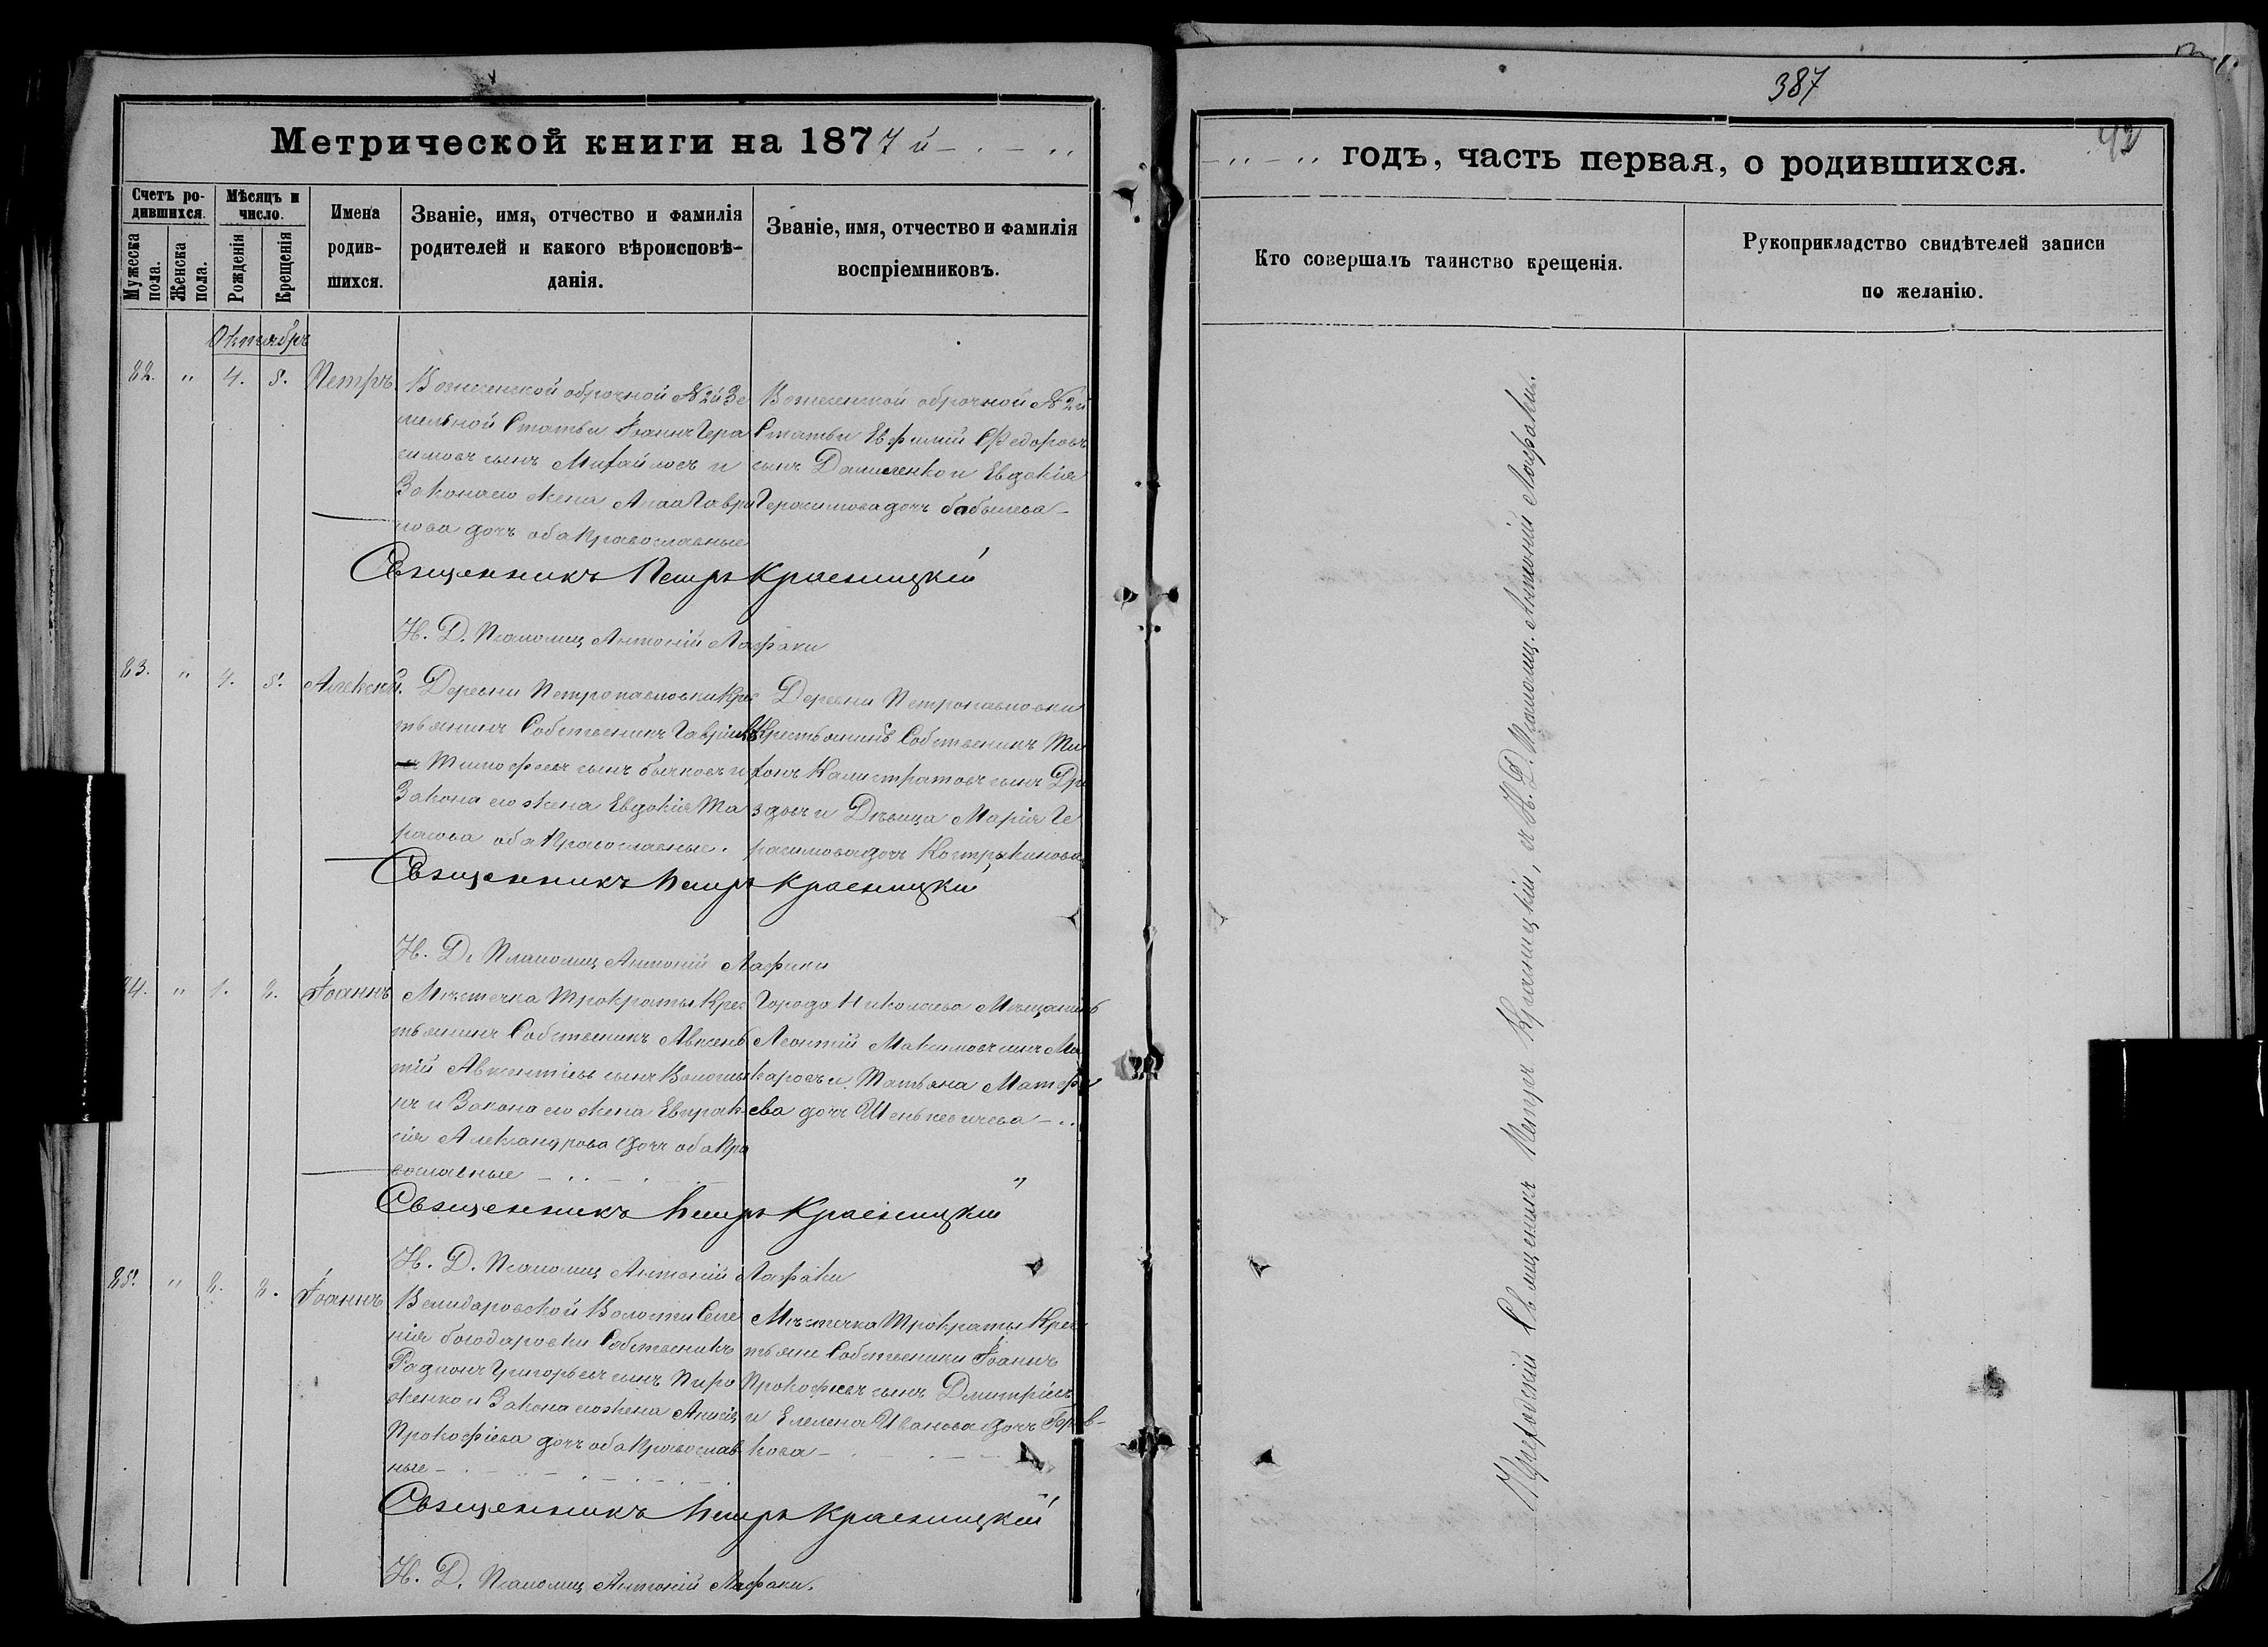 387
42
Метрической книги на 1877 й
годъ, часть первая, о родившихся.
Счетъ ро-
дившихся.
Мужеска
пола.
Женска
пола.
Мѣсяцъ и
число.
Рожденія
Крещенія
Имена
родив-
шихся.
Званіе, имя, отчество и фамилія
родителей и какого вѣроисповѣ-
данія.
Званіе, имя, отчество и фамилія
воспріемниковъ.
Кто совершалъ таинство крещенія.
Рукоприкладство свидѣтелей записи
по желанію.
Октябрь
82. " 4. 5. Петръ.
оброчной № 2й Зе
мельной Статьи Іоаннъ Гера
симовъ сынъ Михайловъ и
Законая его жена Анна Гаври
лова дочъ оба Православные
оброчной № 2й
Статьи Евфимій Федоровъ
сынъ Даниленко и Евдокія
Герасимова дочъ Бабышева
Священникъ Петръ Красницкій
И. Д. Псаломщ. Антоній Лафаки
83. " 4. 5. Алексѣй.
Деревни Петропавловки Крес
тьянинъ Собственикъ Гавріилъ
Тимофеевъ сынъ Бычковъ и
Закона его жена Евдокія Та
расова оба Православные.
Деревни Петропавловки
Крестьянинъ Собственикъ Ти
хонъ Калистратовъ сынъ Дро
здовъ и Дѣвица Марія Ге
расимова дочъ Кострыкинова
Священникъ Петръ Красницкій
И. Д. Псаломщ. Антоній Лафаки
84. " 1. 2. Іоаннъ
Мѣстечка Трикраты Крес
тьянинъ Собственикъ Авксен
тій Авксентіевъ сынъ Волошы
нъ и Закона его жена Евпрак
сія Александрова дочъ оба Пра
вославные
Города Николаева Мѣщанинъ
Леонтій Максимовъ сынъ Ма
каровъ и Татьяна Матфѣ
ева дочъ Шенькевичева
Священникъ Петръ Красницкій
И. Д. Псаломщ. Антоній Лафаки
85. " 2. 2. Іоаннъ
Волости Селе
нія Богодаровки Собственикъ
Радионъ Григорьевъ сынъ Пиро
женко и Закона его жена Анисія
Прокофіева дочъ оба Православ
ные
Мѣстечка Трикраты Крес
тьяне Собственики Іоаннъ
Прокофіевъ сынъ Дмитріевъ
и Елена Иванова дочъ
кова
Священникъ Петръ Красницкій
И. Д. Псаломщ. Антоній Лафаки.
Приходскій Священникъ Петръ Красницкій, и И. Д. Псаломщ. Антоній Лафаки.